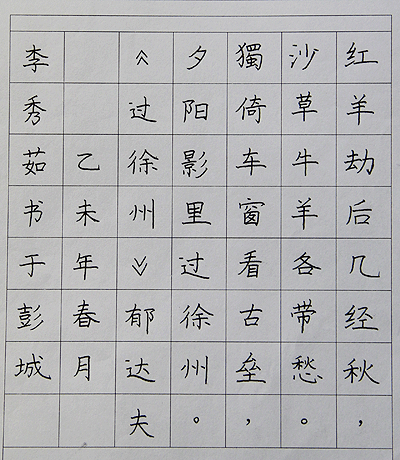 红羊劫后几经秋，
沙草牛羊各带愁。
獨倚车窗看古垒，
夕阳影里过徐州。
《过徐州》郁达夫
乙未年春月
李秀茹书于彭城